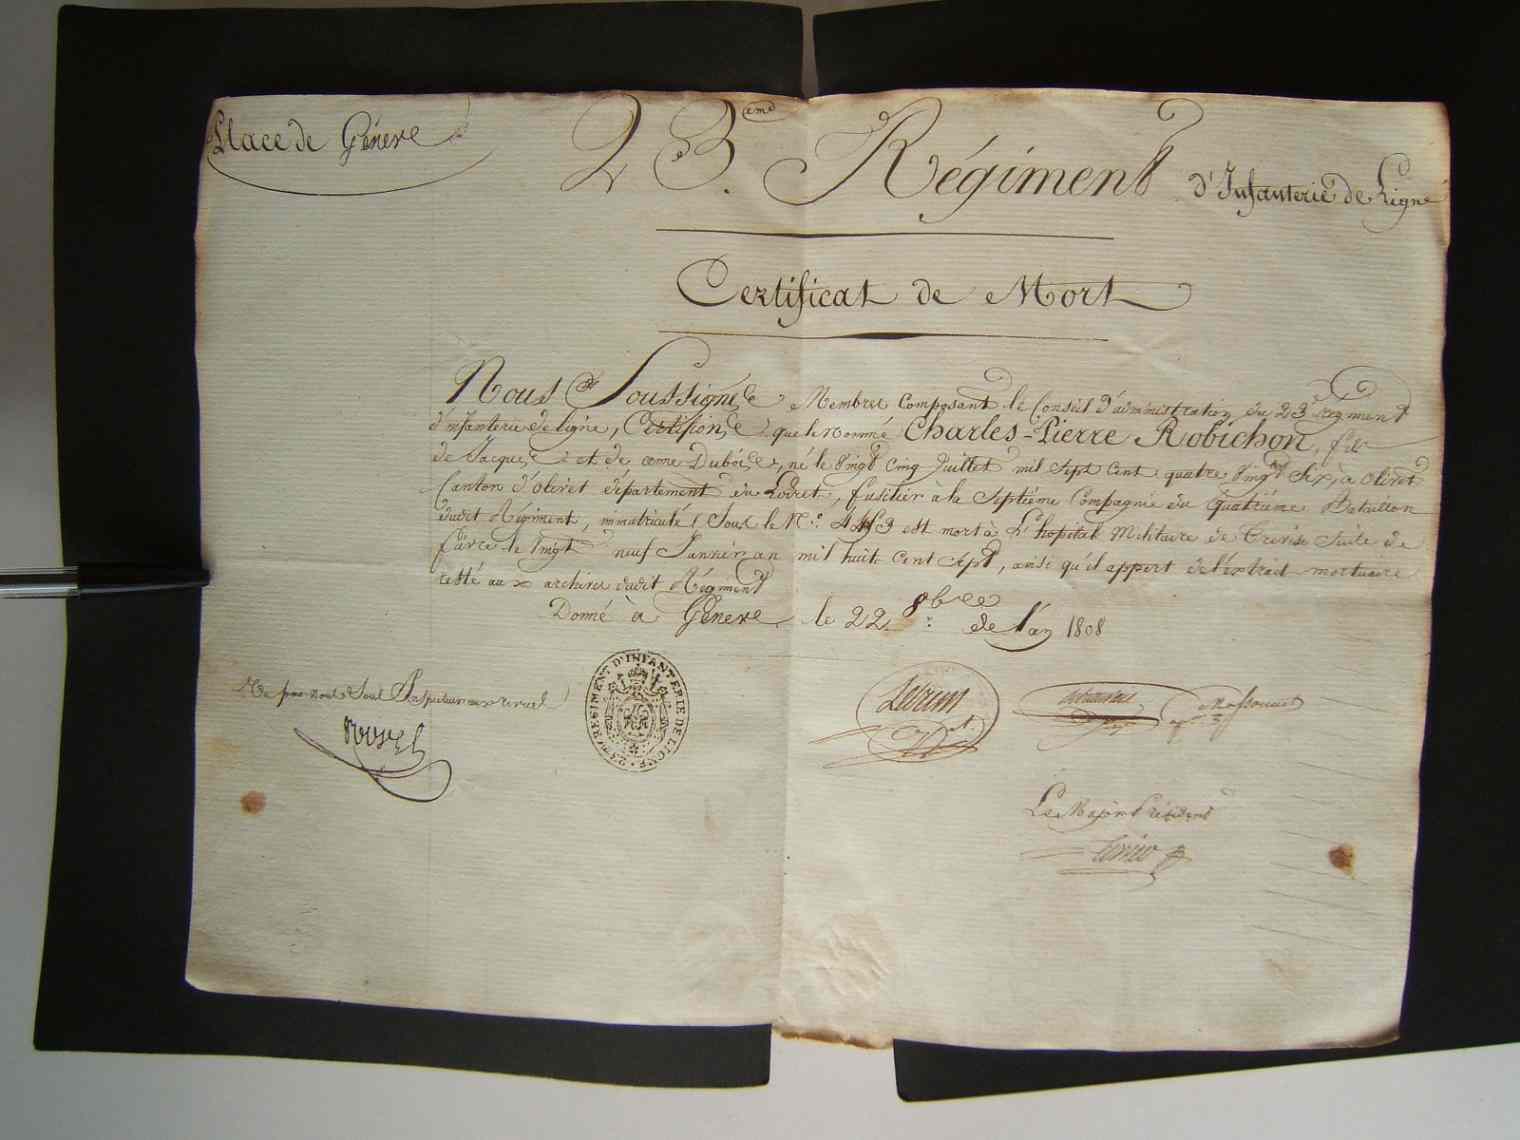 Place de Géneve
23.eme Régiment d'Infanterie de Ligne
Certificat de Mort
Nous Soussignée Membres Composant le Conseil d'administration du 23 regiment
d'infanterie de ligne, Certifions que le nommé Charles-Pierre Robichon, fils
de Jacques et de Dubois, né le Vingt Cinq Juillet mil Sept Cent quatre Vingt Six, à olivet
Canton d'olivet département du Loiret, fusilier à la Septiéme Compagnie du Quatriéme Bataillon
dudit Régiment, immatriculé Sous le N.o est mort à L'hopital Militaire de Trevise Suite de
fiévre le Vingt neuf Janvier an mil huit Cent Sept, ainsi qu'il appert de l'éxtrait mortuaire
resté au x archives dudit Régiment
Donné à Géneve le 22 8bre de l'an 1808
Vu par nous Sous Inspecteur aux revues
23.me REGIMENT D'INFANTERIE DE LIGNE
Lebrun
Massonnet
Le Major Président